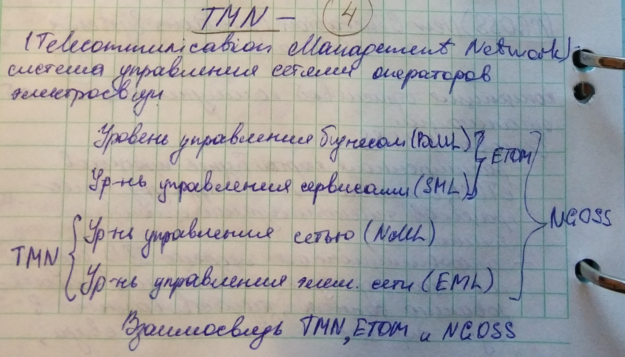 TMN – 4
(Telecommunication Management Network)
система управления сетями операторов
электросвязи
Уровень управления бизнесом (BML) ETOM
Ур-нь управления сервисами (SML)
NGOSS
Ур-нь управления сетью (NML)
TMN
Ур-нь управления элем. сети (EML)
Взаимосвязь TMN, ETOM и NGOSS